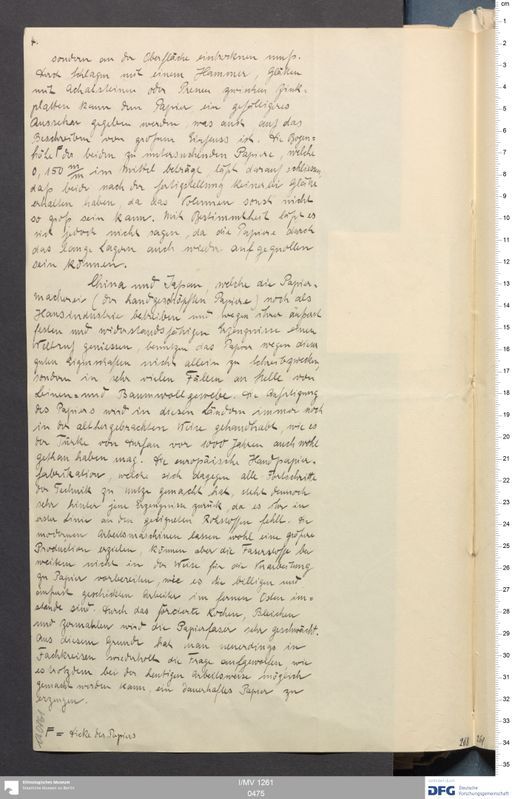 4.
sondern an der Oberfläche eintrocknen muss.
Durch Schlagen mit einem Hammer, Glätten
mit Achatsteinen oder Pressen zwischen Zink-
platten kann dem Papier ein gefälligeres
Aussehen gegeben werden was auch auf das
Beschreiben von grossem Einfluss ist. Die Bogen-
höhe F der beiden zu untersuchenden Papiere, welche
0,150 m/m im Mittel beträgt lässt darauf schliessen,
dass beide nach der Fertigstellung keinerlei Glätte
erhalten haben, da das Volumen sonst nicht
so gross sein kann. Mit Bestimmtheit lässt es
sich jedoch nicht sagen, da die Papiere durch
das lange Lagern auch wieder aufgequollen
sein können.
China und Japan, welche die Papier-
macherei (der handgeschöpften Papiere) noch als
Hausindustrie betreiben und wegen ihrer äusserst
festen und widerstandsfähigen Erzeugnisse einen
Weltruf geniessen, benutzen das Papier wegen dieser
guten Eigenschaften nicht allein zu Schreibzwecken,
sondern in sehr vielen Fällen an Stelle von
Leinen- und Baumwollgewebe. Die Anfertigung
des Papiers wird in diesen Ländern immer noch
in der althergebrachten Weise gehandhabt, wie es
der Türke von Turfan vor 1000 Jahren auch wohl
gethan haben mag. Die europäische Handpapier-
fabrikation, welche sich dagegen alle Fortschritte
der Technik zu nutze gemacht hat, steht dennoch
sehr hinter jene Erzeugnisse zurück, da es ihr in
erster Linie an den geeigneten Rohstoffen fehlt. Die
modernen Arbeitsmaschinen lassen wohl eine grössere
Production erzielen, können aber die Faserstoffe bei
weitem nicht in der Weise für die Verarbeitung
zu Papier vorbereiten, wie es die billigen und
äusserst geschickten Arbeiter im fernen Osten im-
stande sind. Durch das forcierte Kochen, Bleichen
und Zermahlen wird die Papierfaser sehr geschwächt.
Aus diesem Grunde hat man neuerdings in
Fachkreisen wiederholt die Frage aufgeworfen, wie
es trotzdem bei der heutigen Arbeitsweise möglich
gemacht werden kann, ein dauerhaftes Papier zu
erzeugen.
F = Dicke des Papiers
Ethnologisches Museum
Staatliche Museen zu Berlin
I/MV 1261
0475
DFG Deutsche
Forschungsgemeinschaft